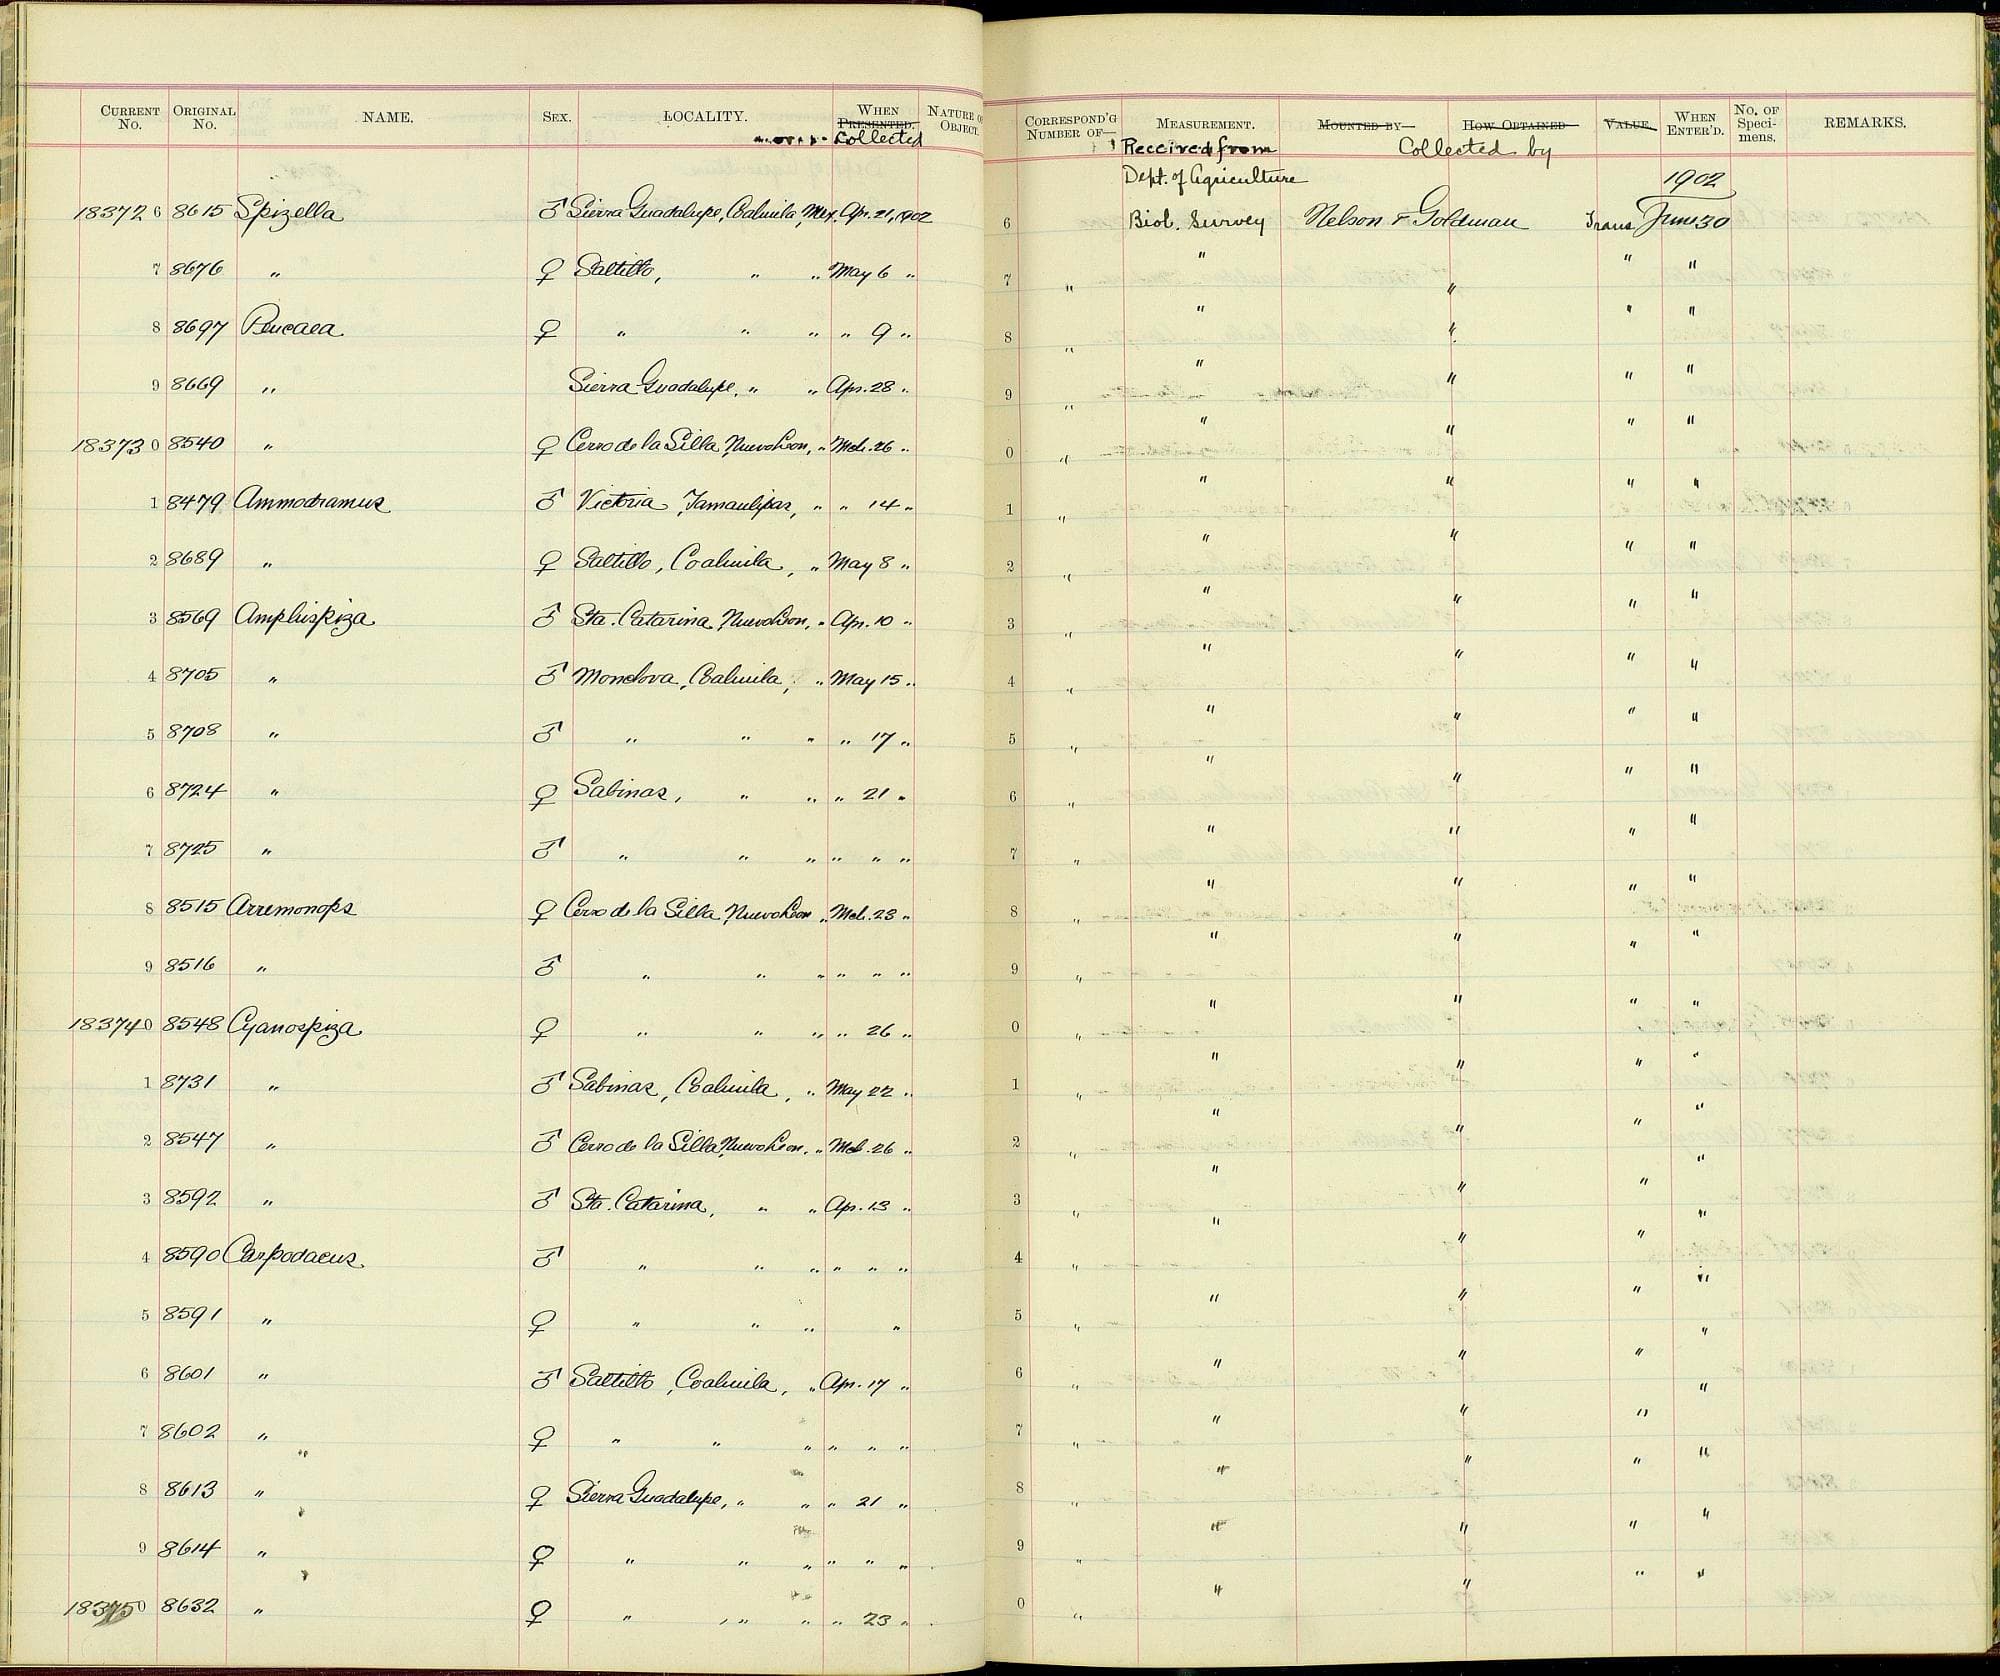 CURRENT No. ORIGINAL No. NAME. SEX. LOCALITY. WHEN PRESENTED. Collected NATURE OF OBJECT.
183726 8615 Spizella ♂ Sierra Guadalupe, Coahuila, Mex. Apr. 21, 1902
7 8676 " ♀ Saltillo, " " May 6 "
8 8697 Peucaea ♀ " " " " 9 "
9 8669 " Sierra Guadalupe, " " Apr. 28 "
183730 8540 " ♀ Cerro de la Silla, Nuevo Leon, " Mch. 26 "
1 8479 Ammodramus ♂ Victoria, Tamaulipas, " " 14 "
2 8689 " ♀ Saltillo, Coahuila, " May 8 "
3 8569 Amphispiza ♂ Sta. Catarina, Nuevo Leon, " Apr. 10 "
4 8705 " ♂ Monclova, Coahuila, " May 15 "
5 8708 " ♂ " " " " 17 "
6 8724 " ♀ Sabinas, " " " 21 "
7 8725 " ♂ " " " " " "
8 8515 Arremonops ♀ Cerro de la Silla, Nuevo Leon " Mch. 23 "
9 8516 " ♂ " " " " " "
183740 8548 Cyanospiza ♀ " " " " 26 "
1 8731 " ♂ Sabinas, Coahuila, " May 22 "
2 8547 " ♂ Cerro de la Silla, Nuevo Leon, " Mch. 26 "
3 8592 " ♂ Sta. Catarina, " " Apr. 13 "
4 8590 Carpodacus ♂ " " " " " "
5 8591 " ♀ " " " "
6 8601 " ♂ Saltillo, Coahuila, " Apr. 17 "
7 8602 " ♀ " " " " " "
8 8613 " ♀ Sierra Guadalupe, " " " 21 "
9 8614 " ♀ " " " " " "
183750 8632 " ♀ " , " " " 23 "
CORRESPOND'G NUMBER OF— MEASUREMENT. MOUNTED BY— HOW OBTAINED VALUE. WHEN ENTER'D. No. OF Specimens. REMARKS.
Received from Collected by
Dept. of Agriculture 1902
6 Biol. Survey Nelson & Goldman Trans June 30
7 " " " " "
8 " " " " "
9 " " " " "
0 " " " " "
1 " " " " "
2 " " " " "
3 " " " " "
4 " " " " "
5 " " " " "
6 " " " " "
7 " " " " "
8 " " " " "
9 " " " " "
0 " " " " "
1 " " " " "
2 " " " " "
3 " " " " "
4 " " " " "
5 " " " " "
6 " " " " "
7 " " " " "
8 " " " " "
9 " " " " "
0 " " " " "